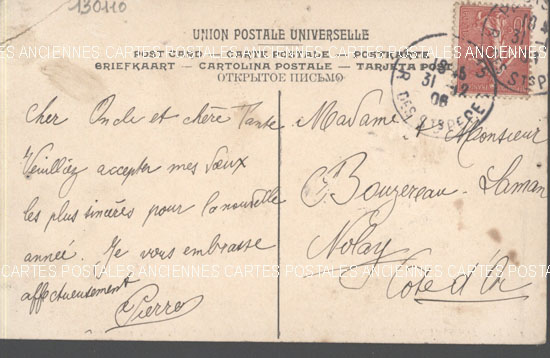 130110
UNION POSTALE UNIVERSELLE
POST CARD — CARTE POSTALE — POSTKARTE
BRIEFKAART — CARTOLINA POSTALE — TARJETA POSTAL
ОТКРЫТОЕ ПИСЬМО
CARTES POSTALES ANCIENNES CARTES POSTALES ANCIENNES CARTES POSTALES
18
31 - 12
06
R. DES STS PERES
Cher Oncle et chère Tante
Veuillez accepter mes vœux
les plus sincères pour la nouvelle
année. Je vous embrasse
affectueusement
Pierre
Madame & Monsieur
C. Bouzereau-Laman
Nolay
Côte d'Or
CARTES POSTALES ANCIENNES CARTES POSTALES ANCIENNES CARTES POSTALES